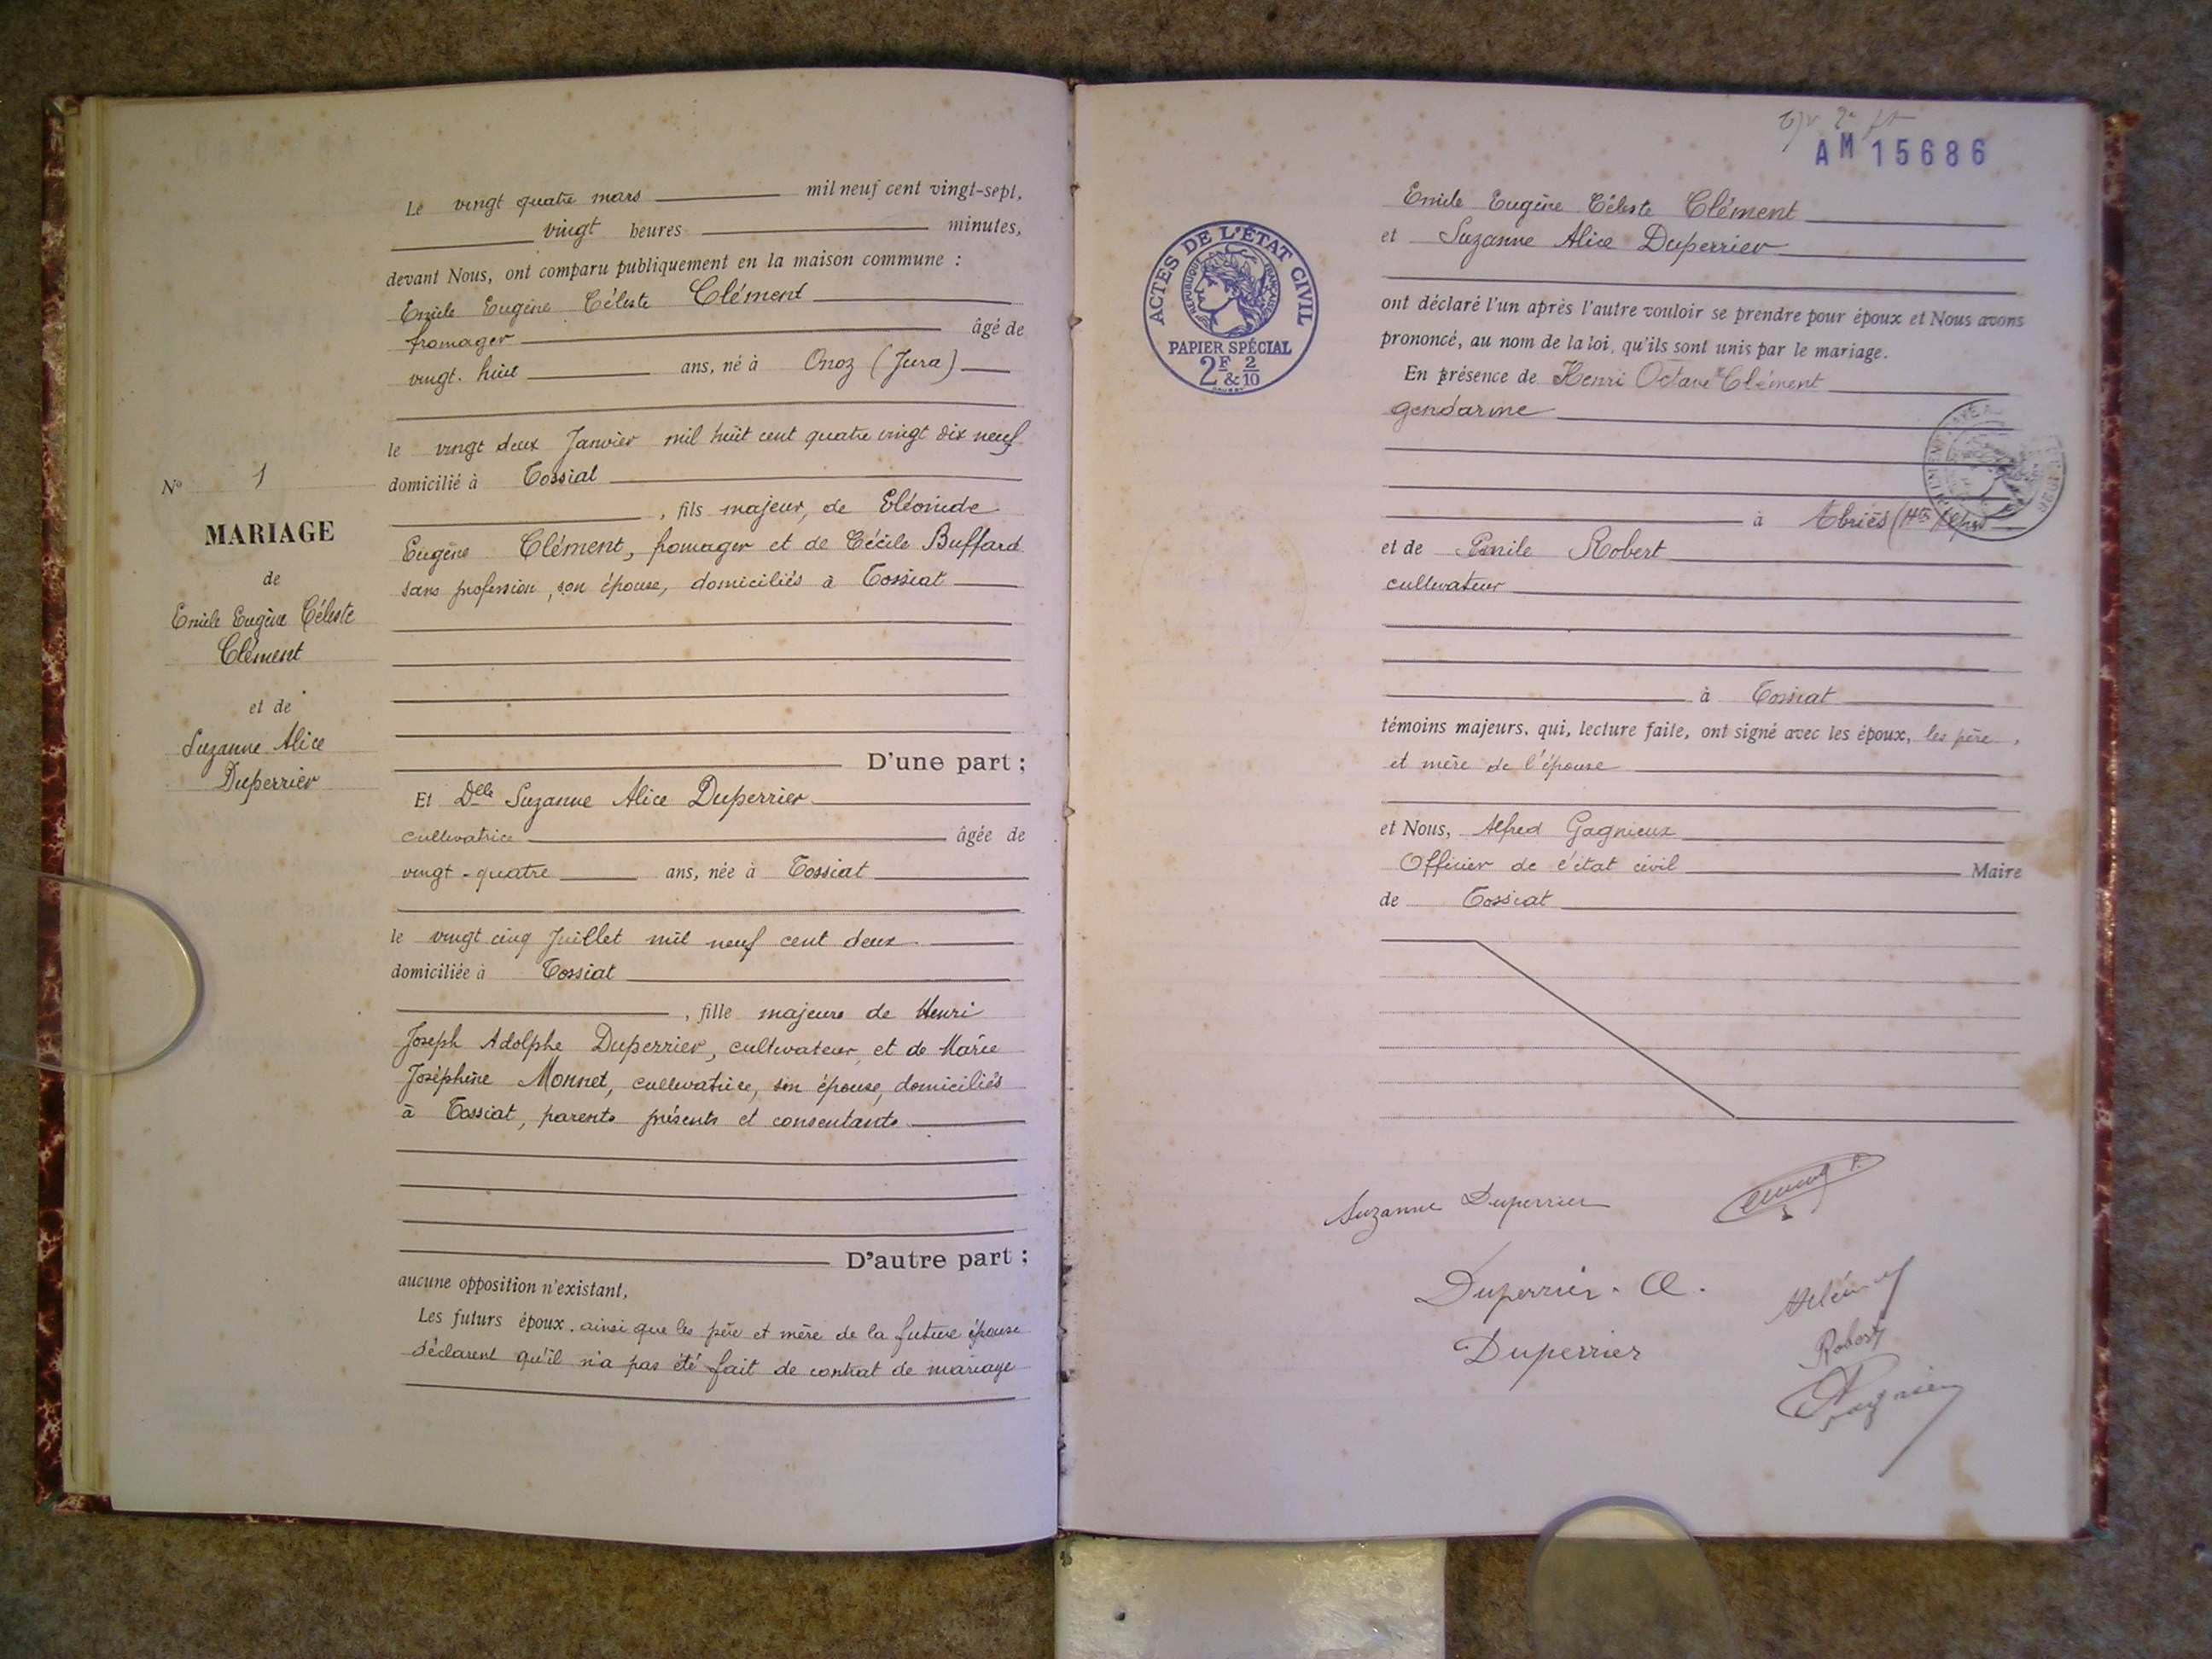 Le vingt quatre mars mil neuf cent vingt-sept,
vingt heures minutes,
devant Nous, ont comparu publiquement en la maison commune :
Emile Eugène Céleste Clément
fromager âgé de
vingt-huit ans, né à Onoz (Jura)
le vingt deux Janvier mil huit cent quatre vingt dix neuf
domicilié à Tossiat
, fils majeur, de Cléonide
Eugène Clément, fromager et de Cécile Buffard
sans profession, son épouse, domiciliés à Tossiat
D'une part ;
Et Delle Suzanne Alice Duperrier
cultivatrice âgée de
vingt-quatre ans, née à Tossiat
le vingt cinq Juillet mil neuf cent deux
domiciliée à Tossiat
, fille majeure de Henri
Joseph Adolphe Duperrier, cultivateur, et de Marie
Joséphine Monnet, cultivatrice, son épouse, domiciliés
à Tossiat, parents présents et consentants
D'autre part ;
aucune opposition n'existant,
Les futurs époux, ainsi que les père et mère de la future épouse
déclarent qu'il n'a pas été fait de contrat de mariage
No 1
MARIAGE
de
Emile Eugène Céleste
Clément
et de
Suzanne Alice
Duperrier
AM 15686
ACTES DE L'ÉTAT CIVIL
RÉPUBLIQUE FRANÇAISE
PAPIER SPÉCIAL
2F & 2/10
Emile Eugène Céleste Clément
et Suzanne Alice Duperrier
ont déclaré l'un après l'autre vouloir se prendre pour époux et Nous avons
prononcé, au nom de la loi, qu'ils sont unis par le mariage.
En présence de Henri Octave Clément
gendarme
à Abriès (Htes Alpes
et de Emile Robert
cultivateur
à Tossiat
témoins majeurs, qui, lecture faite, ont signé avec les époux, les père,
et mère de l'épouse
et Nous, Alfred Gagnieux
Officier de l'état civil Maire
de Tossiat
Suzanne Duperrier
Duperrier. A.
Duperrier
Robert